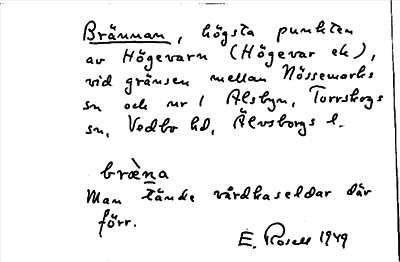 Brännan, högsta punkten
av Högevarn (Högevar ek),
vid gränsen mellan Nössemarks
sn och nr 1 Alsbyn, Torrskogs
sn, Vedbo hd, Älvsborgs l.
bræ̀na
Man tände vårdkaseldar där
förr.
E. Rosell 1949